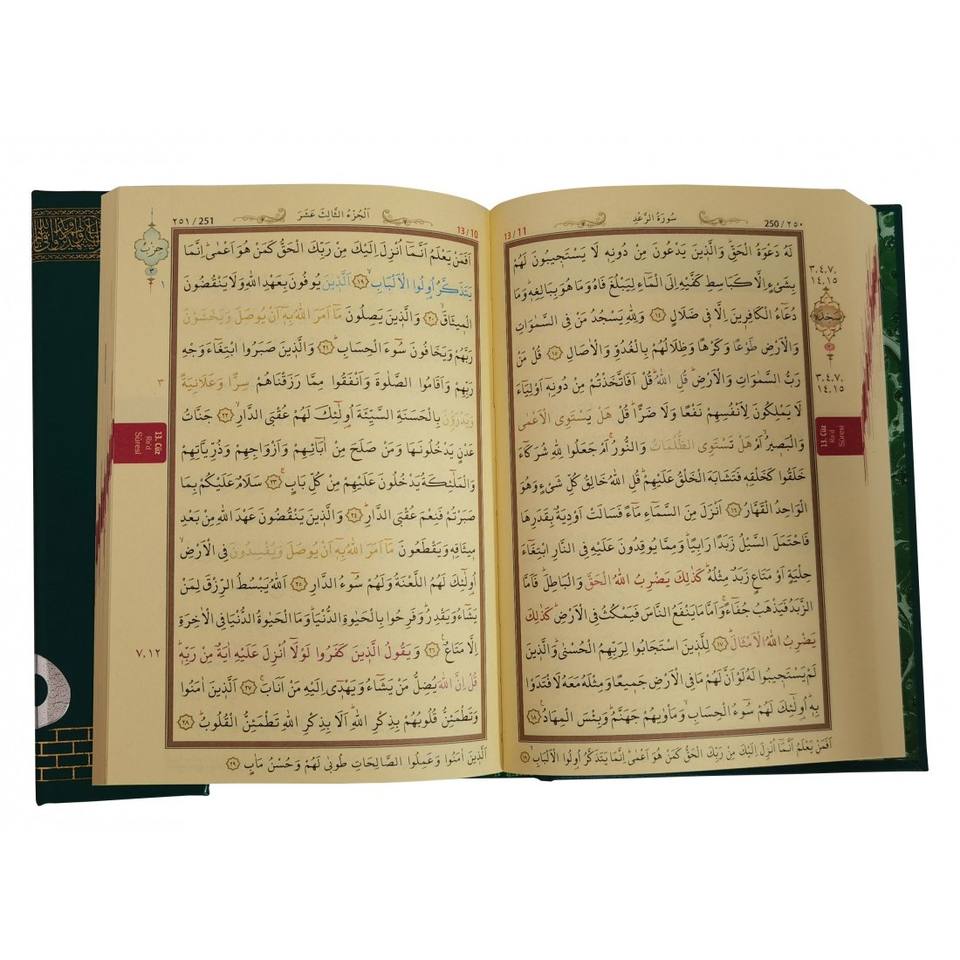 سُورَةُ الرَّعْدِ
250 / ٢٥٠
13 / 11
لَهُ دَعْوَةُ الْحَقِّ وَالَّذِينَ يَدْعُونَ مِنْ دُونِهِ لَا يَسْتَجِيبُونَ لَهُمْ
بِشَيْءٍ اِلَّا كَبَاسِطِ كَفَّيْهِ اِلَى الْمَٓاءِ لِيَبْلُغَ فَاهُ وَمَا هُوَ بِبَالِغِهِ وَمَا
دُعَٓاءُ الْكَافِرِينَ اِلَّا فِى ضَلَالٍ ﴿١٤﴾ وَلِلّٰهِ يَسْجُدُ مَنْ فِى السَّمٰوَاتِ
وَالْاَرْضِ طَوْعًا وَكَرْهًا وَظِلَالُهُمْ بِالْغُدُوِّ وَالْاٰصَالِ ﴿١٥﴾ قُلْ مَنْ
رَبُّ السَّمٰوَاتِ وَالْاَرْضِ قُلِ اللّٰهُ قُلْ اَفَاتَّخَذْتُمْ مِنْ دُونِهِٓ اَوْلِيَٓاءَ
لَا يَمْلِكُونَ لِاَنْفُسِهِمْ نَفْعًا وَلَا ضَرًّا قُلْ هَلْ يَسْتَوِى الْاَعْمٰى
وَالْبَصِيرُ اَمْ هَلْ تَسْتَوِى الظُّلُمَاتُ وَالنُّورُ اَمْ جَعَلُوا لِلّٰهِ شُرَكَٓاءَ
خَلَقُوا كَخَلْقِهِ فَتَشَابَهَ الْخَلْقُ عَلَيْهِمْ قُلِ اللّٰهُ خَالِقُ كُلِّ شَيْءٍ وَهُوَ
الْوَاحِدُ الْقَهَّارُ ﴿١٦﴾ اَنْزَلَ مِنَ السَّمَٓاءِ مَٓاءً فَسَالَتْ اَوْدِيَةٌ بِقَدَرِهَا
فَاحْتَمَلَ السَّيْلُ زَبَدًا رَابِيًا وَمِمَّا يُوقِدُونَ عَلَيْهِ فِى النَّارِ ابْتِغَٓاءَ
حِلْيَةٍ اَوْ مَتَاعٍ زَبَدٌ مِثْلُهُ كَذٰلِكَ يَضْرِبُ اللّٰهُ الْحَقَّ وَالْبَاطِلَ فَاَمَّا
الزَّبَدُ فَيَذْهَبُ جُفَٓاءً وَاَمَّا مَا يَنْفَعُ النَّاسَ فَيَمْكُثُ فِى الْاَرْضِ كَذٰلِكَ
يَضْرِبُ اللّٰهُ الْاَمْثَالَ ﴿١٧﴾ لِلَّذِينَ اسْتَجَابُوا لِرَبِّهِمُ الْحُسْنٰى وَالَّذِينَ
لَمْ يَسْتَجِيبُوا لَهُ لَوْ اَنَّ لَهُمْ مَا فِى الْاَرْضِ جَمِيعًا وَمِثْلَهُ مَعَهُ لَافْتَدَوْا
بِهِ اُولٰٓئِكَ لَهُمْ سُٓوءُ الْحِسَابِ وَمَأْوٰيهُمْ جَهَنَّمُ وَبِئْسَ الْمِهَادُ ﴿١٨﴾
اَفَمَنْ يَعْلَمُ اَنَّمَٓا اُنْزِلَ اِلَيْكَ مِنْ رَبِّكَ الْحَقُّ كَمَنْ هُوَ اَعْمٰى اِنَّمَا يَتَذَكَّرُ اُولُوا الْاَلْبَابِ ﴿١٩﴾
٣،٤،٧،
١٤،١٥
سجدة
٣،٤،٧،
١٤،١٥
13. Cüz
Ra'd
Sûresi
اَلْجُزْءُ الثَّالِثَ عَشَرَ
٢٥١ / 251
13 / 10
اَفَمَنْ يَعْلَمُ اَنَّمَٓا اُنْزِلَ اِلَيْكَ مِنْ رَبِّكَ الْحَقُّ كَمَنْ هُوَ اَعْمٰى اِنَّمَا
يَتَذَكَّرُ اُولُوا الْاَلْبَابِ ﴿١٩﴾ اَلَّذِينَ يُوفُونَ بِعَهْدِ اللّٰهِ وَلَا يَنْقُضُونَ
الْمِيثَاقَ ﴿٢٠﴾ وَالَّذِينَ يَصِلُونَ مَٓا اَمَرَ اللّٰهُ بِهِٓ اَنْ يُوصَلَ وَيَخْشَوْنَ
رَبَّهُمْ وَيَخَافُونَ سُٓوءَ الْحِسَابِ ﴿٢١﴾ وَالَّذِينَ صَبَرُوا ابْتِغَٓاءَ وَجْهِ
رَبِّهِمْ وَاَقَامُوا الصَّلٰوةَ وَاَنْفَقُوا مِمَّا رَزَقْنَاهُمْ سِرًّا وَعَلَانِيَةً
وَيَدْرَؤُنَ بِالْحَسَنَةِ السَّيِّئَةَ اُولٰٓئِكَ لَهُمْ عُقْبَى الدَّارِ ﴿٢٢﴾ جَنَّاتُ
عَدْنٍ يَدْخُلُونَهَا وَمَنْ صَلَحَ مِنْ اٰبَٓائِهِمْ وَاَزْوَاجِهِمْ وَذُرِّيَّاتِهِمْ
وَالْمَلٰٓئِكَةُ يَدْخُلُونَ عَلَيْهِمْ مِنْ كُلِّ بَابٍ ﴿٢٣﴾ سَلَامٌ عَلَيْكُمْ بِمَا
صَبَرْتُمْ فَنِعْمَ عُقْبَى الدَّارِ ﴿٢٤﴾ وَالَّذِينَ يَنْقُضُونَ عَهْدَ اللّٰهِ مِنْ بَعْدِ
مِيثَاقِهِ وَيَقْطَعُونَ مَٓا اَمَرَ اللّٰهُ بِهِٓ اَنْ يُوصَلَ وَيُفْسِدُونَ فِى الْاَرْضِ
اُولٰٓئِكَ لَهُمُ اللَّعْنَةُ وَلَهُمْ سُٓوءُ الدَّارِ ﴿٢٥﴾ اَللّٰهُ يَبْسُطُ الرِّزْقَ لِمَنْ
يَشَٓاءُ وَيَقْدِرُ وَفَرِحُوا بِالْحَيٰوةِ الدُّنْيَا وَمَا الْحَيٰوةُ الدُّنْيَا فِى الْاٰخِرَةِ
اِلَّا مَتَاعٌ ﴿٢٦﴾ وَيَقُولُ الَّذِينَ كَفَرُوا لَوْلَٓا اُنْزِلَ عَلَيْهِ اٰيَةٌ مِنْ رَبِّهِ
قُلْ اِنَّ اللّٰهَ يُضِلُّ مَنْ يَشَٓاءُ وَيَهْدِٓى اِلَيْهِ مَنْ اَنَابَ ﴿٢٧﴾ اَلَّذِينَ اٰمَنُوا
وَتَطْمَئِنُّ قُلُوبُهُمْ بِذِكْرِ اللّٰهِ اَلَا بِذِكْرِ اللّٰهِ تَطْمَئِنُّ الْقُلُوبُ ﴿٢٨﴾
اَلَّذِينَ اٰمَنُوا وَعَمِلُوا الصَّالِحَاتِ طُوبٰى لَهُمْ وَحُسْنُ مَاٰبٍ ﴿٢٩﴾
حزب
٢
١
٣
٧،١٢
13. Cüz
Ra'd
Sûresi